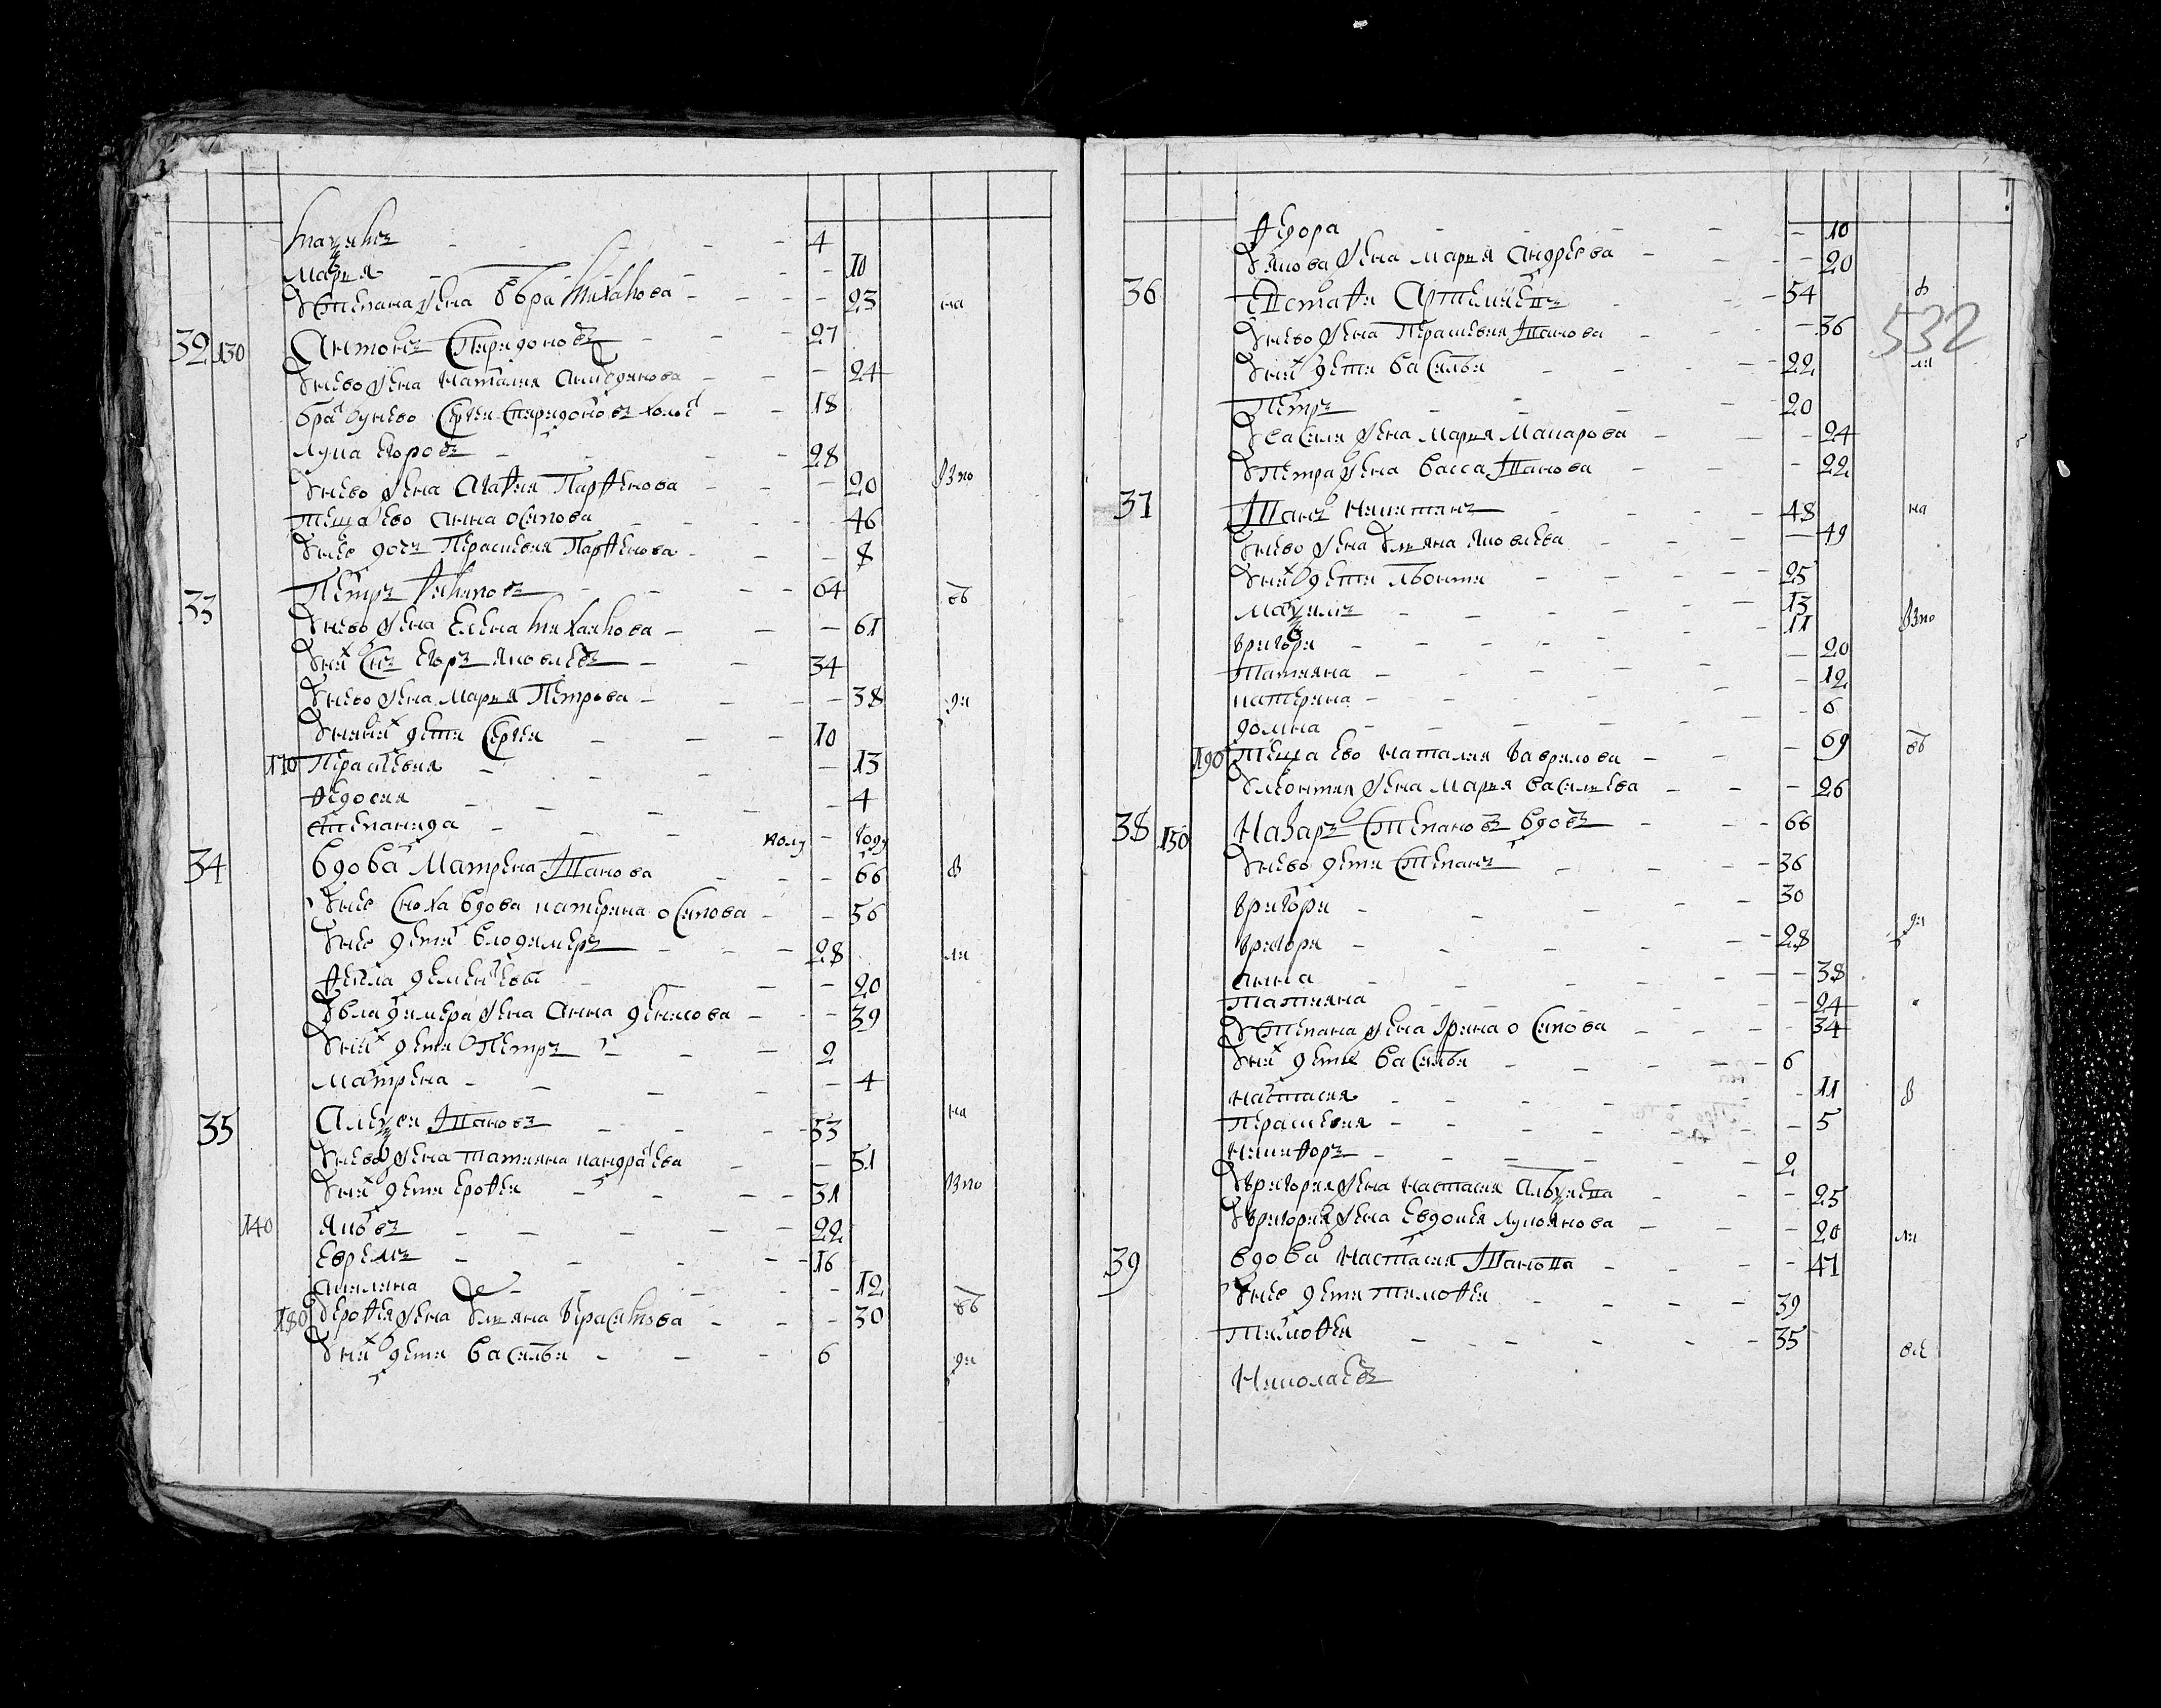 Марья — 10
Степана жена Вера Михайлова — 23 на
32 130 Антонъ Спиридоновъ 27
У нево жена Наталия — 24
братъ у нево Сергеи Спиридоновъ холостъ 18
Лука Егоровъ 28
У нево жена Агафия Парфенова — 20 въ то
Теща ево Анна Осипова — 46
У нее дочь Перасковия Парфенова — 8
33 Петръ 64 об
У нево жена Елена Михайлова — 61
У них сынъ Егоръ Яковлевъ 34
У нево жена Марья Петрова — 38 ди
У них дети Сергеи 10
170 Перасковия — 13
Федосия — 4
Степанида полу — году
34 Вдова Матрена Иванова — 66 в
У нее сноха вдова Катерина Осипова — 56
У нее дети Володимеръ 28 ли
Фекла Дементьева — 20
У Владимера жена Анна Денисова — 39
У них дети Петръ 2
Матрена — 4
35 Алексеи Ивановъ 53 на
У нево жена Татияна Кандратьева — 51
У них дети Ерофеи 31 въ то
140 Яковъ 22
Ефремъ 16
Акилина — 12
180 У Ерофея жена Ульяна Герасимова — 30 об
У них дети Василеи 6 ди
Федора — 10
У Якова жена Марья Андреева — 20
36 Естафи Артемиевъ 54 в
532
У нево жена Перасковия Иванова — 36
У них дети Василеи 22 ли
Петръ 20
У Василя жена Марья Макарова — 24
У Петра жена Васса Иванова — 22
37 Иванъ Никитинъ 48 на
У нево жена Ульяна Яковлева — 49
У них дети Леонти 25
Максимъ 13 въ то
Григори 11
Татияна — 20
Катерина — 12
Домна — 6
190 Теща ево Наталия Гаврилова — 69 об
У Леонтия жена Марья Василиева — 26
38 150 Назаръ Степановъ вдовъ 66
У нево дети Степанъ 36
Григори 30
Григори 28 ди
Анна — 38
Татияна — 24
У Степана жена Ирина Осипова — 34
У них дети Василеи 6
Настасия — 11 в
Перасковия — 5
Никифоръ 2
У Григория жена Настасия Алексиева — 25
У Григория жена Евдокея Лукоянова — 20 ли
39 Вдова Настасия Иванова — 47
У нее дети Тимофеи 39
Тимофеи 35 все
Николаевъ